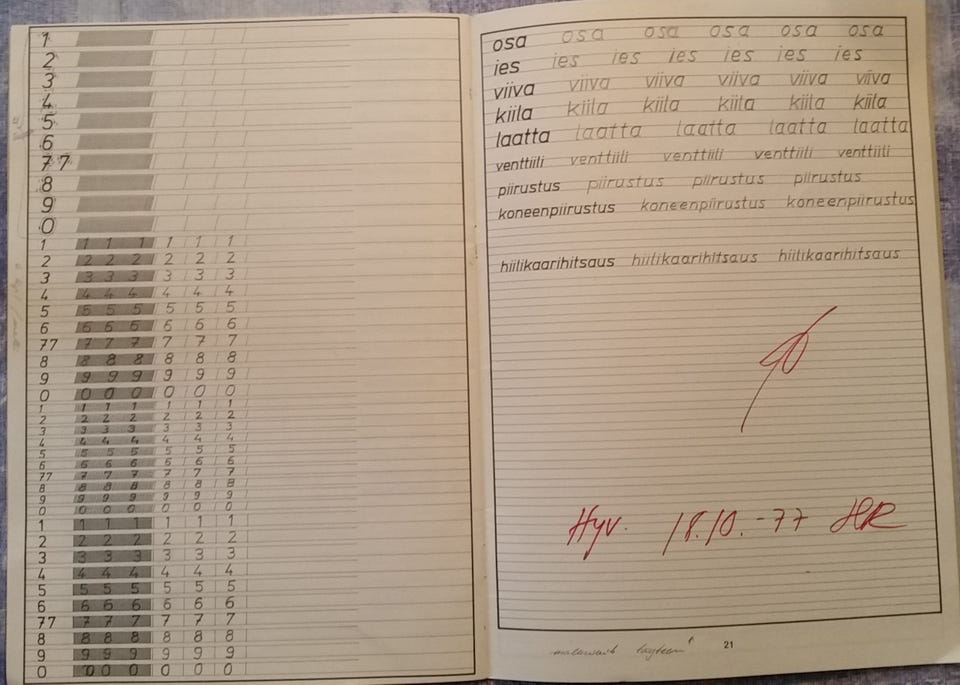 1
2
3
4
5
6
7 7
8
9
0
1 1 1 1 1 1 1
2 2 2 2 2 2 2
3 3 3 3 3 3 3
4 4 4 4 4 4 4
5 5 5 5 5 5 5
6 6 6 6 6 6 6
77 7 7 7 7 7 7
8 8 8 8 8 8 8
9 9 9 9 9 9 9
0 0 0 0 0 0 0
1 1 1 1 1 1 1
2 2 2 2 2 2 2
3 3 3 3 3 3 3
4 4 4 4 4 4 4
5 5 5 5 5 5 5
6 6 6 6 6 6 6
77 7 7 7 7 7 7
8 8 8 8 8 8 8
9 9 9 9 9 9 9
0 0 0 0 0 0 0
1 1 1 1 1 1 1
2 2 2 2 2 2 2
3 3 3 3 3 3 3
4 4 4 4 4 4 4
5 5 5 5 5 5 5
6 6 6 6 6 6 6
77 7 7 7 7 7 7
8 8 8 8 8 8 8
9 9 9 9 9 9 9
0 0 0 0 0 0 0
osa osa osa osa osa osa
ies ies ies ies ies ies ies
viiva viiva viiva viiva viiva viiva
kiila kiila kiila kiila kiila kiila
laatta laatta laatta laatta laatta
venttiili venttiili venttiili venttiili venttiili
piirustus piirustus piirustus piirustus
koneenpiirustus koneenpiirustus koneenpiirustus
hiilikaarihitsaus hiilikaarihitsaus hiilikaarihitsaus
Hyv. 18.10.-77 HR
21